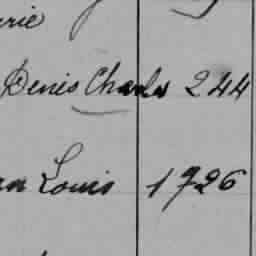 rie
Denis Charles 244
an Louis 1726